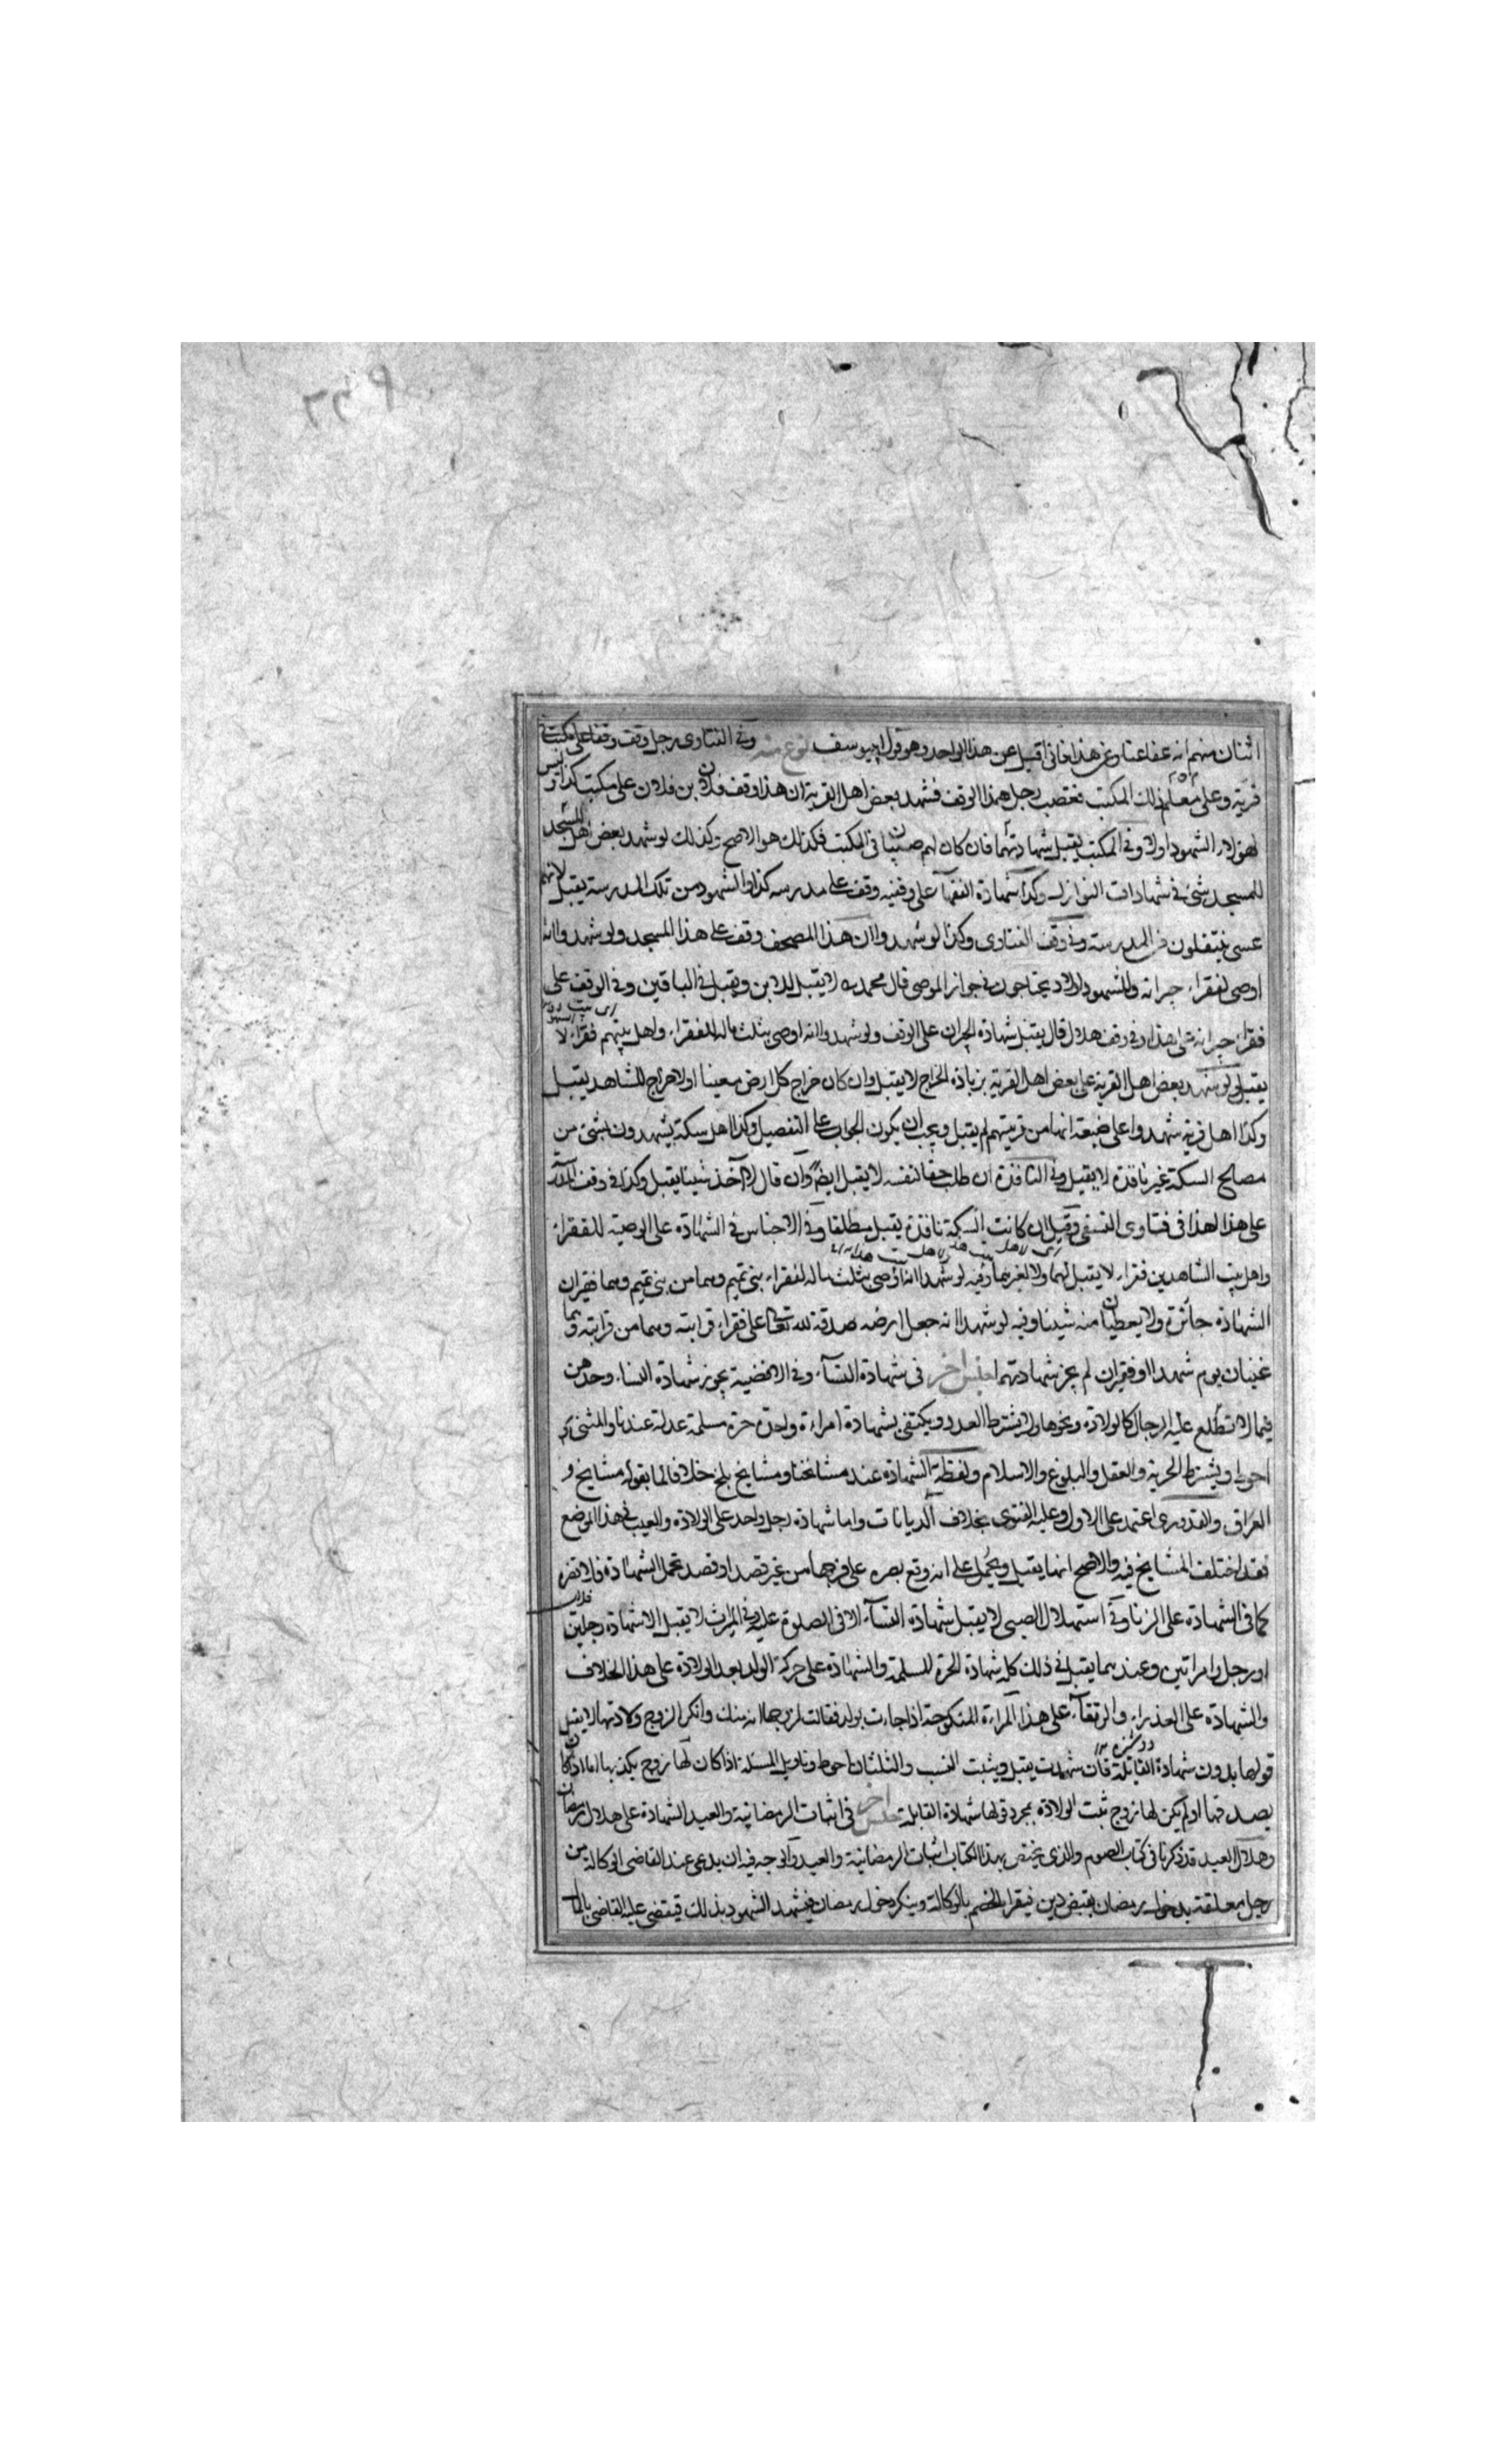 اثنان منهم انه عفا عنا وعن هذا فانى اقبل عن هذا الواحد وهو قول ابى يوسف نوع منه وفى الفتاوى رجل وقف وقفا على مكتب فى
قرية وعلى معلم ذلك المكتب فغصب رجل هذا الوقف فشهد بعض اهل القرية ان هذا وقف فلان بن فلان على مكتب كذا وليس
لهؤلاء الشهود اولاد فى المكتب يقبل شهادتهما فان كان لهم صبيان فى المكتب فكذلك هو الاصح وكذلك لو شهد بعض اهل المسجد
للمسجد بشئ فى شهادات النوازل وكذا شهادة الفقهآ على وقفية وقف على مدرسه كذا والشهود من تلك المدرسة يقبل لانهم
عسى ينتقلون من المدرسة وفى وقف الفتاوى وكذا لو شهدوا ان هذا المصحف وقف على هذا المسجد ولو شهدوا انه
اوصى لفقراء جيرانه وللشهود اولاد يحتاجون فى جوار الموصى قال محمد ره لا يقبل للابن ويقبل فى الباقين وفى الوقف على
فقراء جيرانه على هذا وفى وقف هلال قال يقبل شهادة الجيران على الوقف ولو شهدوا انه اوصى بثلث ماله للفقراء واهل بيتهم فقراء لا
يقبل ولو شهد بعض اهل القرية على بعض اهل القرية بزيادة الخراج لا يقبل وان كان خراج كل ارض معينا اولا خراج للشاهد يقبل
وكذا اهل قرية شهدوا على ضيعة انها من قريتهم لم يقبل ويجب ان يكون الجواب على التفصيل وكذا اهل سكة يشهدون بشئ من
مصالح السكة غير نافذة لا يقبل وفى النافذة ان طلب حقا لنفسه لا يقبل ايضا وان قال لا آخذ شيئا يقبل وكذا فى وقف المدرسة
على هذا لهذا فى فتاوى النسفى وقيل ان كانت السكة نافذة يقبل مطلقا وفى الاجناس فى الشهادة على الوصية للفقراء
واهل بيت الشاهدين فقراء لا يقبل لهما ولا لغيرهما وفيه لو شهدا انه اوصى بثلث ماله لفقراء بنى تميم وهما من بنى تميم وهما فقيران
الشهادة جائزة ولا يعطيان منه شيئا وفيه لو شهدا انه جعل ارضه صدقة لله تعالى على فقراء قرابته وهما من قرابته وهما
غنيان يوم شهدا او فقيران لم يجز شهادتهما جنس اخر فى شهادة النسآء وفى الاقضية يجوز شهادة النساء وحدهن
فيما لا تطلع عليه الرجال كالولادة ونحوها ولا يشترط العدد ويكتفى بشهادة امراءة واحدة حرة مسلمة عدلة عندنا والمثنى
احوط ويشترط الحرية والعقل والبلوغ والاسلام ولفظة الشهادة عند مشائخنا ومشايخ بلخ خلافا لما يقوله مشايخ
العراق والقدورى اعتمد على الاول وعليه الفتوى بخلاف الديانات واما شهادة رجل واحد على الولادة والعيب فى هذا الموضع
فقد اختلف المشايخ فيه والاصح انها يقبل ويحمل على انه وقع بصره على فرجها من غير قصد او قصد تحمل الشهادة
كما فى الشهادة على الزنا وفى استهلال الصبى لا يقبل شهادة النسآء الا فى الصلوة عليه وفى الميراث لا يقبل الا شهادة رجلين
او رجل وامراتين وعندهما يقبل فى ذلك كله شهادة الحرة المسلمة والشهادة على حركة الولد بعد الولادة على هذا الخلاف
والشهادة على العذراء والرتقآء على هذا المراءة المنكوحة اذا جاءت بولد فقالت لزوجها انه منك وانكر الزوج ولادتها لا يقبل
قولها بدون شهادة القابلة فان شهدت يقبل ويثبت النسب والثلثان احوط وتاويل المسئلة اذا كان لها زوج يكذبها اما اذا كان
يصدقها او لم يكن لها زوج ثبت الولادة بمجرد قولها شهادة القابلة جنس اخر فى اثبات الرمضانية والعيد الشهادة على هلال رمضان
وهلال العيد قد ذكرنا فى كتاب الصوم والذى يختص بهذا الكتاب اثبات الرمضانية والعيد والوجه فيه ان يدعى عند القاضى الوكالة من
رجل معلقة بدخول رمضان بقبض دين فيقر الخصم بالوكالة وينكر دخول رمضان فيشهد الشهود بذلك فيقضى عليه القاضى بالمال